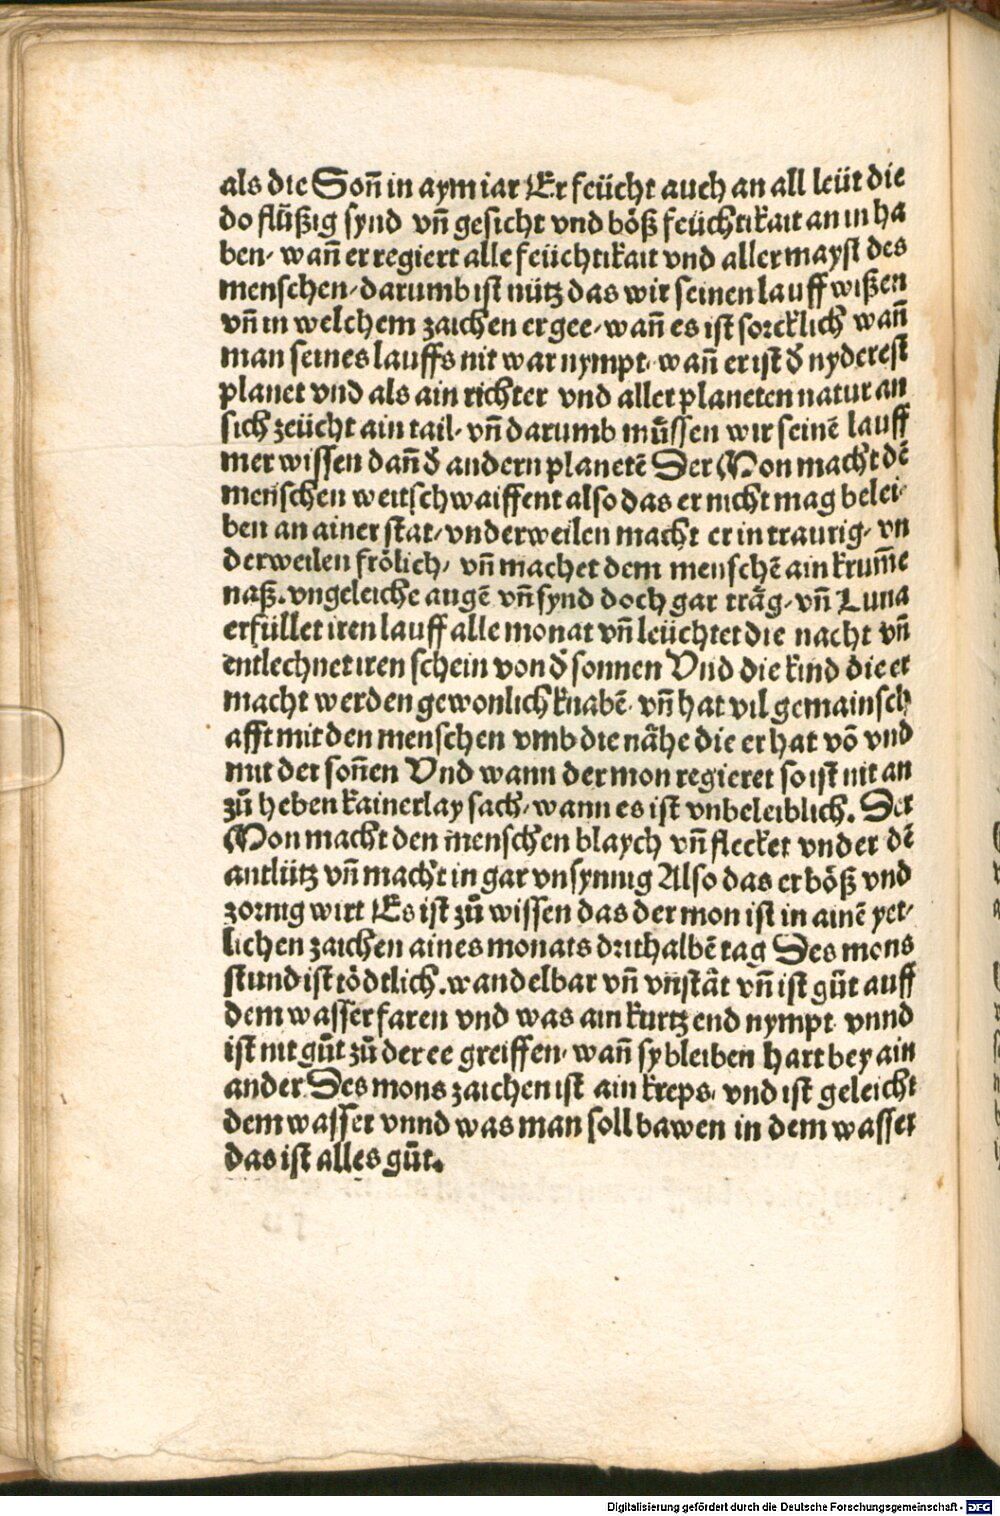 als die Soñ in aym iar Er feücht auch an all leüt die
do flüßig synd vñ gesicht vnd böß feüchtikait an in ha
ben· wañ er regiert alle feüchtikait vnd aller mayst des
menschen/ darumb ist nütz das wir seinen lauff wißen
vñ in welchem zaichen er gee/ wañ es ist sorcklich wañ
man seines lauffs nit war nympt· wañ er ist d̕ nyderest
planet vnd als ain richter vnd aller planeten natur an
sich zeücht ain tail· vñ darumb müssen wir seinē lauff
mer wissen dañ d̕ andern planetē Der Mon macht dē
menschen weitschwaiffent also das er nicht mag belei·
ben an ainer stat/ vnderweilen macht er in traurig/ vn
derweilen frölich/ vñ machet dem menschē ain krum̄e
naß. vngeleiche augē vñ synd doch gar träg/ vñ Luna
erfüllet iren lauff alle monat vñ leüchtet die nacht vñ
entlechnet iren schein von d̕ sonnen Vnd die kind die er
macht werden gewonlich knabē· vñ hat vil gemainsch
afft mit den menschen vmb die nähe die er hat vō vnd
mit der soñen Vnd wann der mon regieret so ist nit an
zů heben kainerlay sach/ wann es ist vnbeleiblich. Der
Mon macht den menschen blaych vñ flecket vnder dē
antlütz vñ macht in gar vnsynnig Also das er böß vnd
zornig wirt Es ist zů wissen das der mon ist in ainē yet/
lichen zaichen aines monats drithalbē tag Des mons
stund ist tödtlich. wandelbar vñ vnstät vñ ist gůt auff
dem wasser faren vnd was ain kurtz end nympt vnnd
ist nit gůt zů der ee greiffen· wañ sy bleiben hart bey ain
ander Des mons zaichen ist ain kreps· vnd ist geleicht
dem wasser vnnd was man soll bawen in dem wasser
das ist alles gůt.
Digitalisierung gefördert durch die Deutsche Forschungsgemeinschaft - DFG